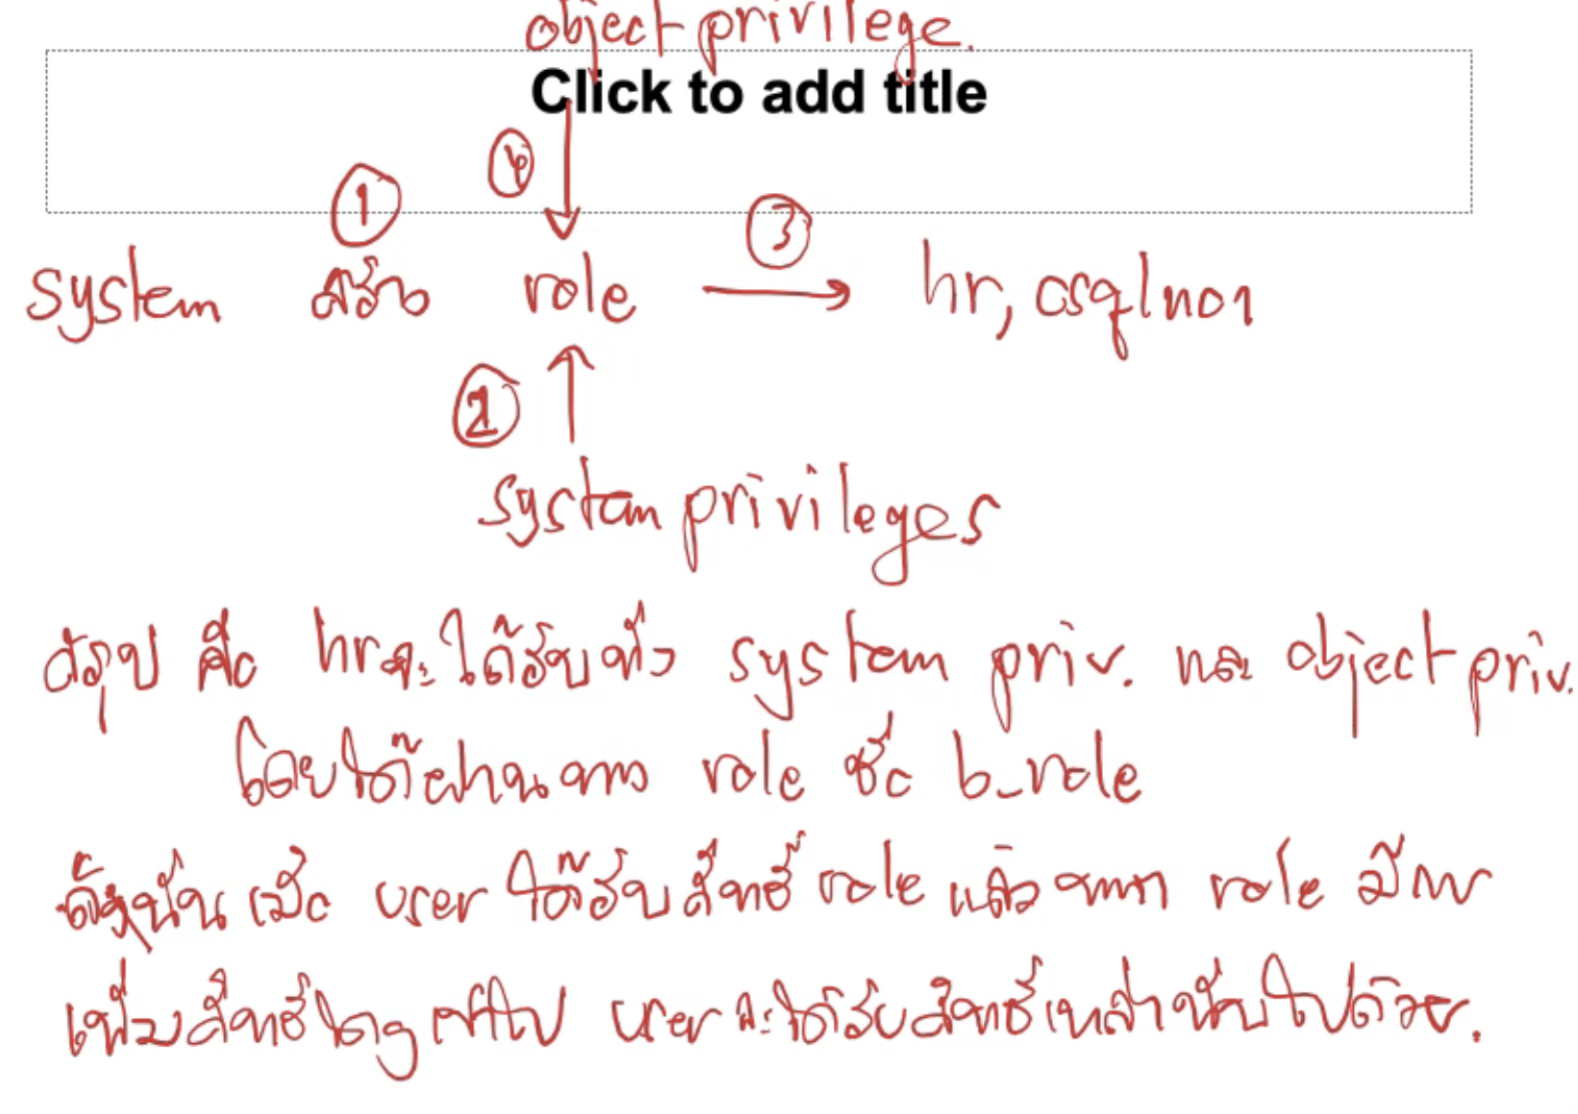 object privilege.
Click to add title
① ④ ③
system สร้าง role → hr,
② ↑
system privileges
สรุป คือ hr จะได้รับทั้ง system priv. และ object priv.
โดยได้ผ่านทาง role ชื่อ b_role
ดังนั้น เมื่อ user ได้รับสิทธิ์ role แล้ว หาก role มีการ
เพิ่มสิทธิ์ใดๆ เข้าไป user จะได้รับสิทธิ์เหล่านั้นไปด้วย.